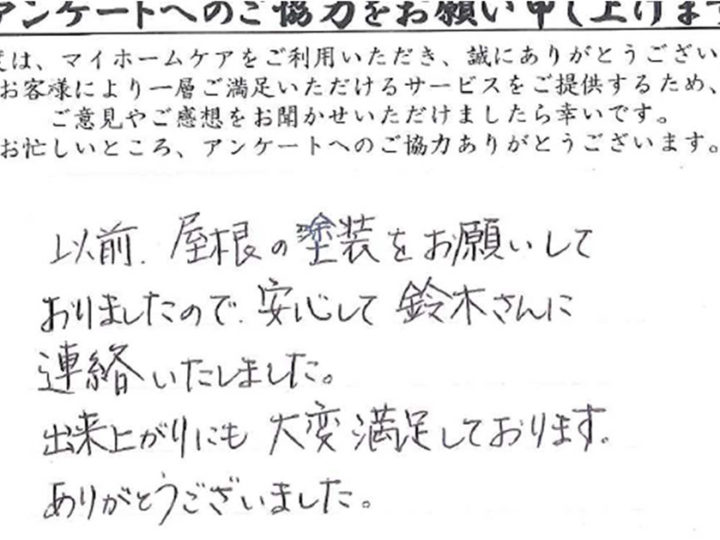 アンケートへのご協力をお願い申し上げます
度は、マイホームケアをご利用いただき、誠にありがとうござい
お客様により一層ご満足いただけるサービスをご提供するため、
ご意見やご感想をお聞かせいただけましたら幸いです。
お忙しいところ、アンケートへのご協力ありがとうございます。
以前、屋根の塗装をお願いして
おりましたので、安心して鈴木さんに
連絡いたしました。
出来上がりにも大変満足しております。
ありがとうございました。